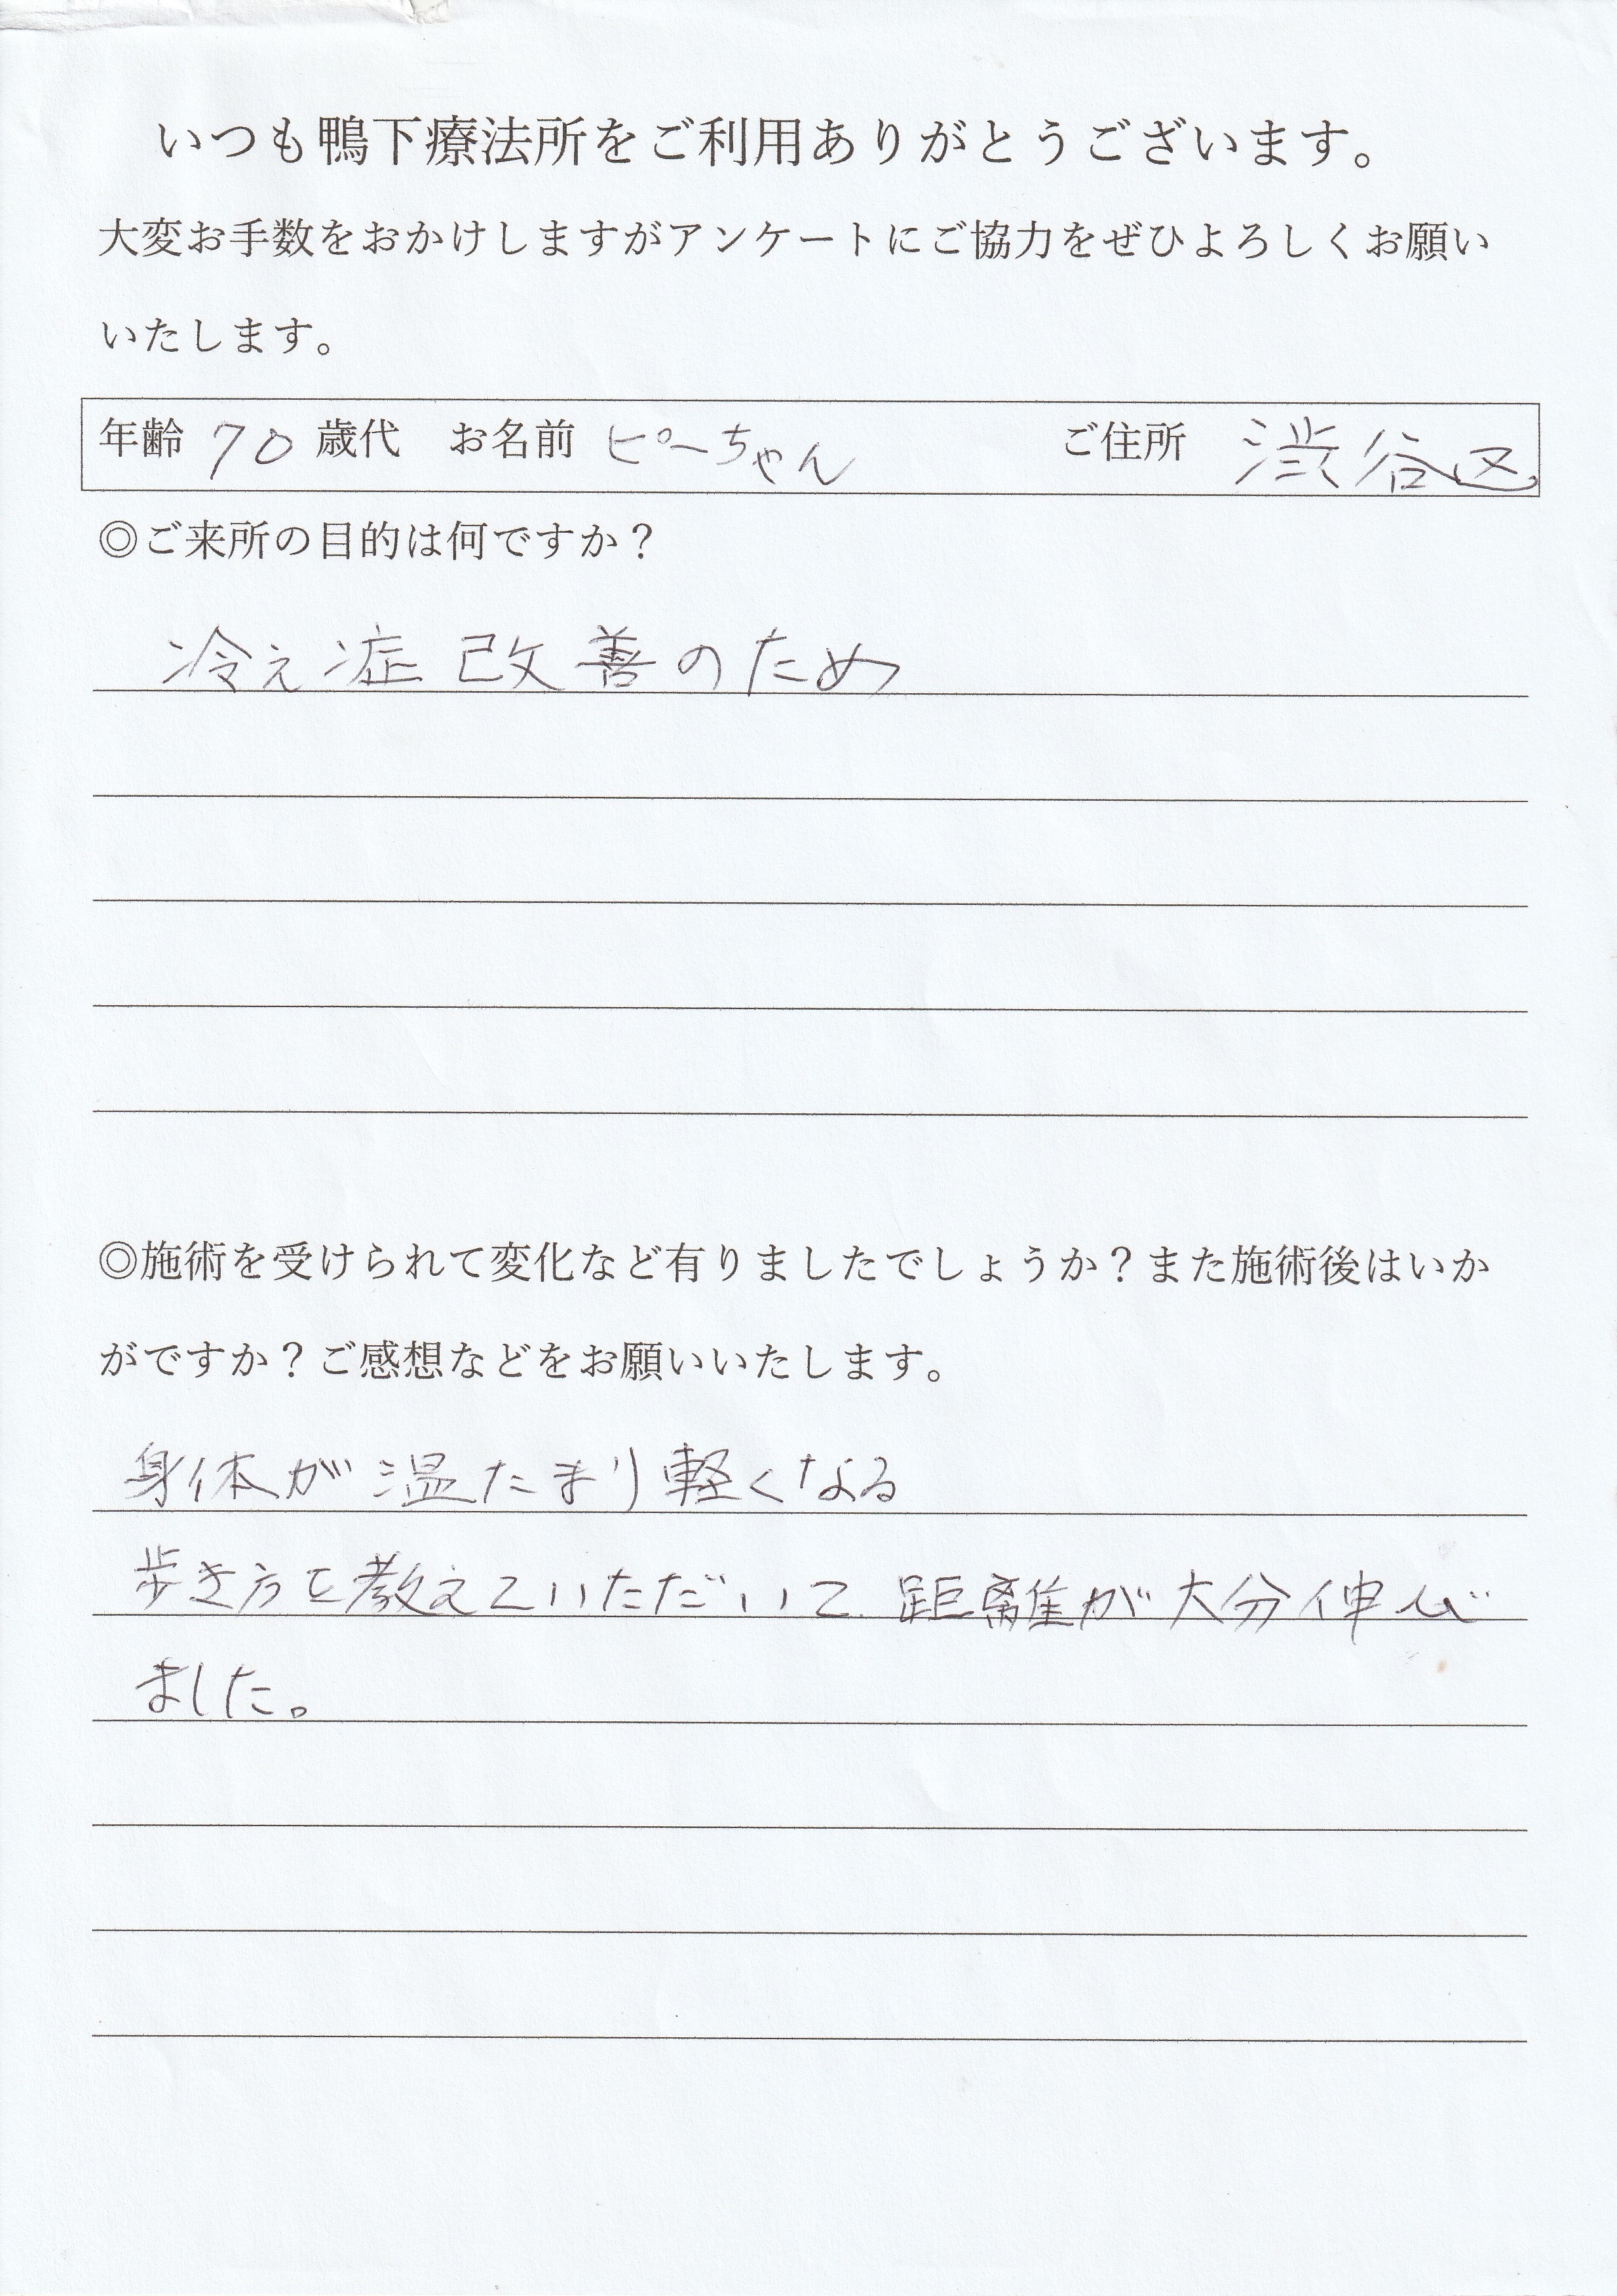 いつも鴨下療法所をご利用ありがとうございます。
大変お手数をおかけしますがアンケートにご協力をぜひよろしくお願い
いたします。
年齢 70 歳代 お名前 ピーちゃん ご住所 渋谷区
◎ご来所の目的は何ですか？
冷え症改善のため
◎施術を受けられて変化など有りましたでしょうか？また施術後はいか
がですか？ご感想などをお願いいたします。
身体が温たまり軽くなる
歩き方を教えていただいて 距離が大分伸び
ました。